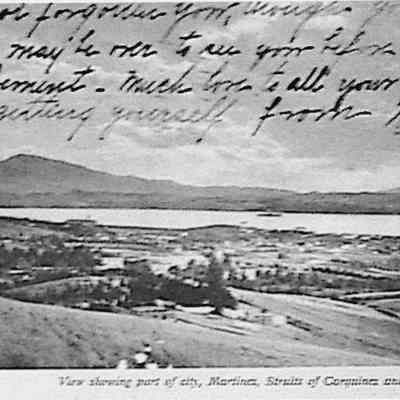 forgotten you, though
may be over to see you before
ement - Much love to all your
getting yourself from
View showing part of city, Martinez, Straits of Carquinez and